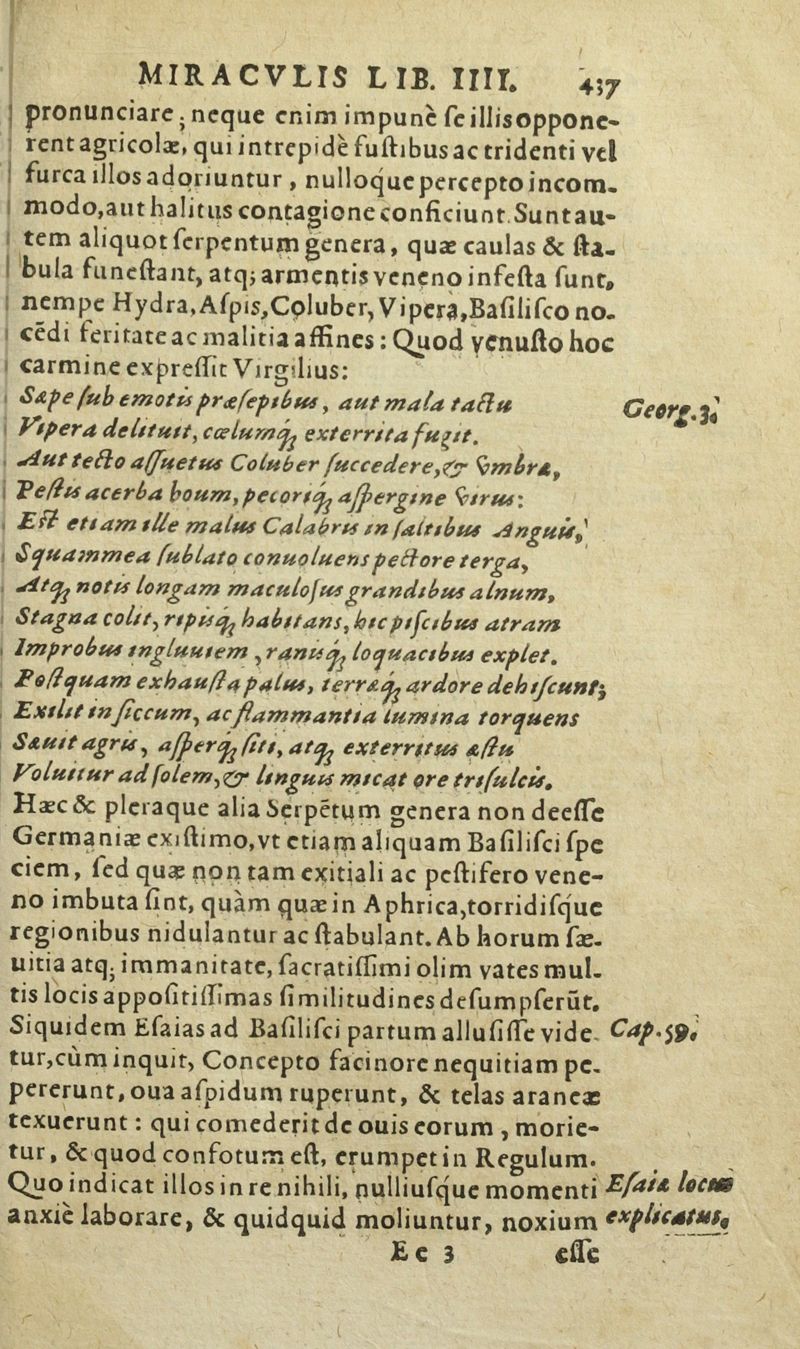 MIRACVLIS LIB. IIII. 437
pronunciare; neque enim impunè se illis oppone-
rent agricolæ, qui intrepidè fustibus ac tridenti vel
furca illos adoriuntur, nulloque percepto incom-
modo, aut halitus contagione conficiunt. Sunt au-
tem aliquot serpentum genera, quæ caulas & sta-
bula funestant, atq; armentis veneno infesta sunt,
nempe Hydra, Aspis, Coluber, Vipera, Basilisco no-
cēdi feritate ac malitia affines: Quod venusto hoc
carmine expressit Virgilius:
Sæpe sub emotis præsepibus, aut mala tactu Georg. 3.
Vipera delituit, cœlumq́; exterrita fugit.
Aut tecto assuetus Coluber succedere, & vmbræ,
Pestis acerba boum, pecoriq́; aspergine virus:
Est etiam ille malus Calabris in saltibus Anguis,
Squammea sublato conuoluens pectore terga,
Atq́; notis longam maculosus grandibus alnum,
Stagna colit, ripisq́; habitans, hic piscibus atram
Improbus ingluuiem, ranisq́; loquacibus explet.
Postquam exhausta palus, terræq́; ardore dehiscunt;
Exilit in siccum, ac flammantia lumina torquens
Sæuit agris, asperq́; siti, atq́; exterritus æstu
Voluitur ad solem, & linguis micat ore trisulcis.
Hæc & pleraque alia Serpētum genera non deesse
Germaniæ existimo, vt etiam aliquam Basilisci spe
ciem, sed quæ non tam exitiali ac pestifero vene-
no imbuta sint, quàm quæ in Aphrica, torridisque
regionibus nidulantur ac stabulant. Ab horum sæ-
uitia atq; immanitate, sacratissimi olim vates mul-
tis locis appositissimas similitudines desumpserūt.
Siquidem Esaias ad Basilisci partum allusisse vide- Cap. 59.
tur, cùm inquit, Concepto facinore nequitiam pe-
pererunt, oua aspidum ruperunt, & telas araneæ
texuerunt: qui comederit de ouis eorum, morie-
tur, & quod confotum est, erumpet in Regulum.
Quo indicat illos in re nihili, nulliusque momenti Esaiæ locus
anxiè laborare, & quidquid moliuntur, noxium explicatus.
Ee 3 esse